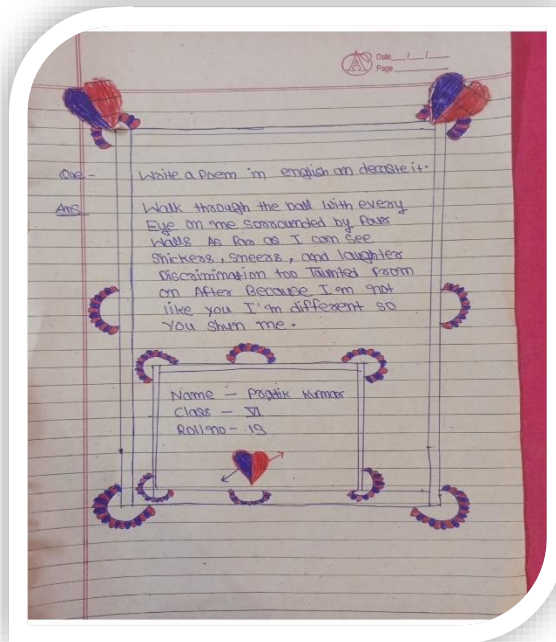 Date__/__/__
Page________
Que - Write a Poem in english an decaste it.
Ans Walk through the ball with every
Eye on me sorrounded by four
Walls As far as I can see
Snickers, Sneers, and laughter
Discrimination too Taunted From
on After Because I'm not
like you I'm different so
You shun me.
Name - Pratik Kumar
Class - VI
Roll no - 19